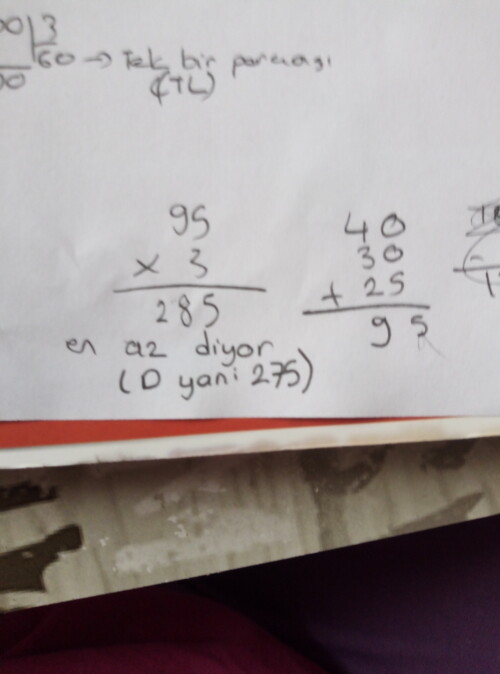 00 3
60 → Tek bir parçası
00 (TL)
95
x 3
285
en az diyor
(D yani 275)
40
30
+ 25
95